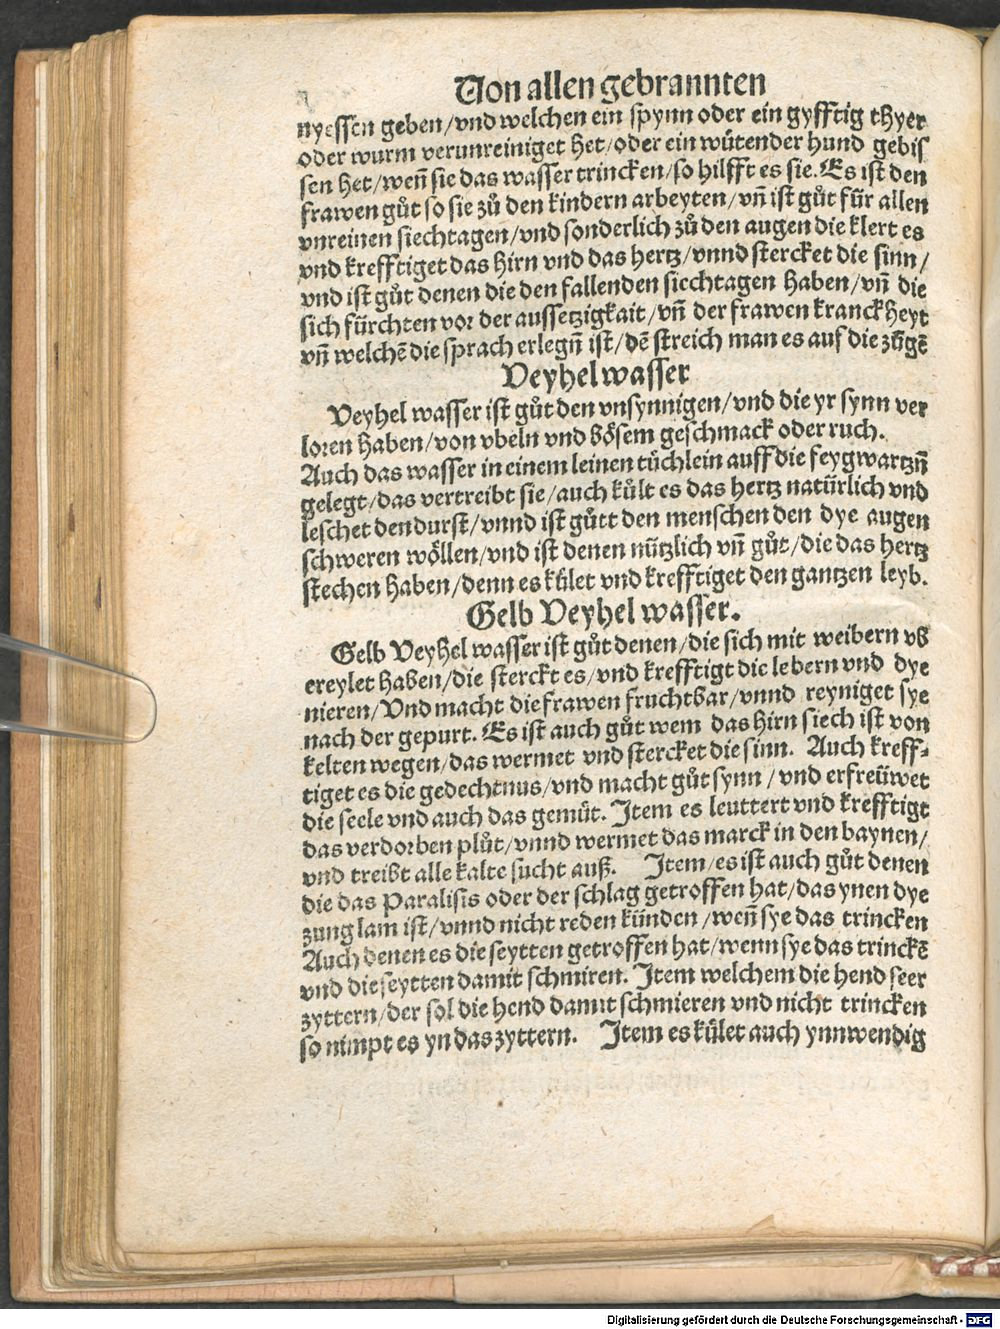 Von allen gebrannten
nyessen geben/vnd welchen ein spynn oder ein gyfftig thyer
oder wurm verunreiniget het/oder ein wůtender hund gebis
sen het/weñ sie das wasser trincken/so hilfft es sie. Es ist den
frawen gůt so sie zů den kindern arbeyten/vñ ist gůt für allen
vnreinen siechtagen/vnd sonderlich zů den augen die klert es
vnd krefftiget das hirn vnd das hertz/vnnd stercket die sinn/
vnd ist gůt denen die den fallenden siechtagen haben/vñ die
sich fürchten vor der aussetzigkait/vñ der frawen kranckheyt
vñ welchē die sprach erlegñ ist/dē streich man es auf die zūgē
Veyhel wasser
Veyhel wasser ist gůt den vnsynnigen/vnd die yr synn ver
loren haben/von vbeln vnd bösem geschmack oder ruch.
Auch das wasser in einem leinen tůchlein auff die feygwartzñ
gelegt/das vertreibt sie/auch kůlt es das hertz natürlich vnd
leschet den durst/vnnd ist gůtt den menschen den dye augen
schweren wöllen/vnd ist denen nützlich vñ gůt/die das hertz
stechen haben/denn es kůlet vnd krefftiget den gantzen leyb.
Gelb Veyhel wasser.
Gelb Veyhel wasser ist gůt denen/die sich mit weibern vb
ereylet haben/die sterckt es/vnd krefftigt die lebern vnd dye
nieren/Vnd macht die frawen fruchtbar/vnnd reyniget sye
nach der gepurt. Es ist auch gůt wem das hirn siech ist von
kelten wegen/das wermet vnd stercket die sinn. Auch kreff⸗
tiget es die gedechtnus/vnd macht gůt synn/vnd erfreüwet
die seele vnd auch das gemůt. Item es leuttert vnd krefftigt
das verdorben plůt/vnnd wermet das marck in den baynen/
vnd treibt alle kalte sucht auß. Item/es ist auch gůt denen
die das Paralisis oder der schlag getroffen hat/das ynen dye
zung lam ist/vnnd nicht reden künden/weñ sye das trincken
Auch denen es die seytten getroffen hat/wenn sye das trinckē
vnd die seytten damit schmiren. Item welchem die hend seer
zyttern/der sol die hend damit schmieren vnd nicht trincken
so nimpt es yn das zyttern. Item es kůlet auch ynnwendig
Digitalisierung gefördert durch die Deutsche Forschungsgemeinschaft - DFG